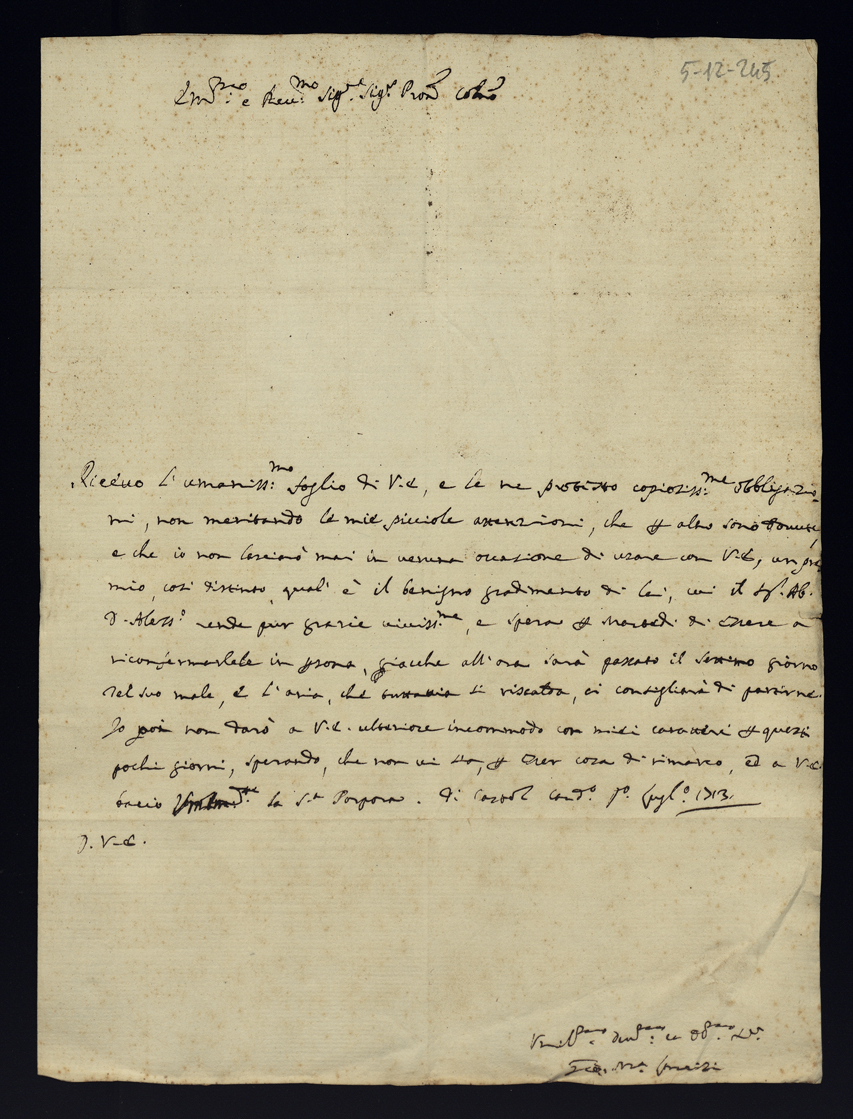 5-12-245.
Em.mo e Rev.mo Sig.re Sig.r Pron Colmo
Ricevo l'umaniss.mo foglio di V.E., e le ne protesto copiosiss.me obbligazio-
ni, non meritando le mie picciole attenzioni, che p altro sono dovute,
e che io non lascierò mai in veruna occasione di usare con V.E., un pre
mio, così distinto, qual' è il benigno gradimento di Lei, cui il Sr. Ab.
D. Aless.o rende pur grazie viviss.me, e spera p Martedì di essere a
riconfermarlele in psona, giacche all'ora sarà passato il settimo giorno
del suo male, e l'aria, che tuttavia si riscalda, ci consiglierà di partirne.
Io poi non darò a V.E. ulteriore incommodo con miei caratteri p questi
pochi giorni, sperando, che non vi sia, p esser cosa di rimarco, ed a V.E.
bacio la S.a Porpora. Di Castel Gand.o p.o Lugl.o 1713.
D. V.E.
Umil.mo Dev.mo ed Obb.mo